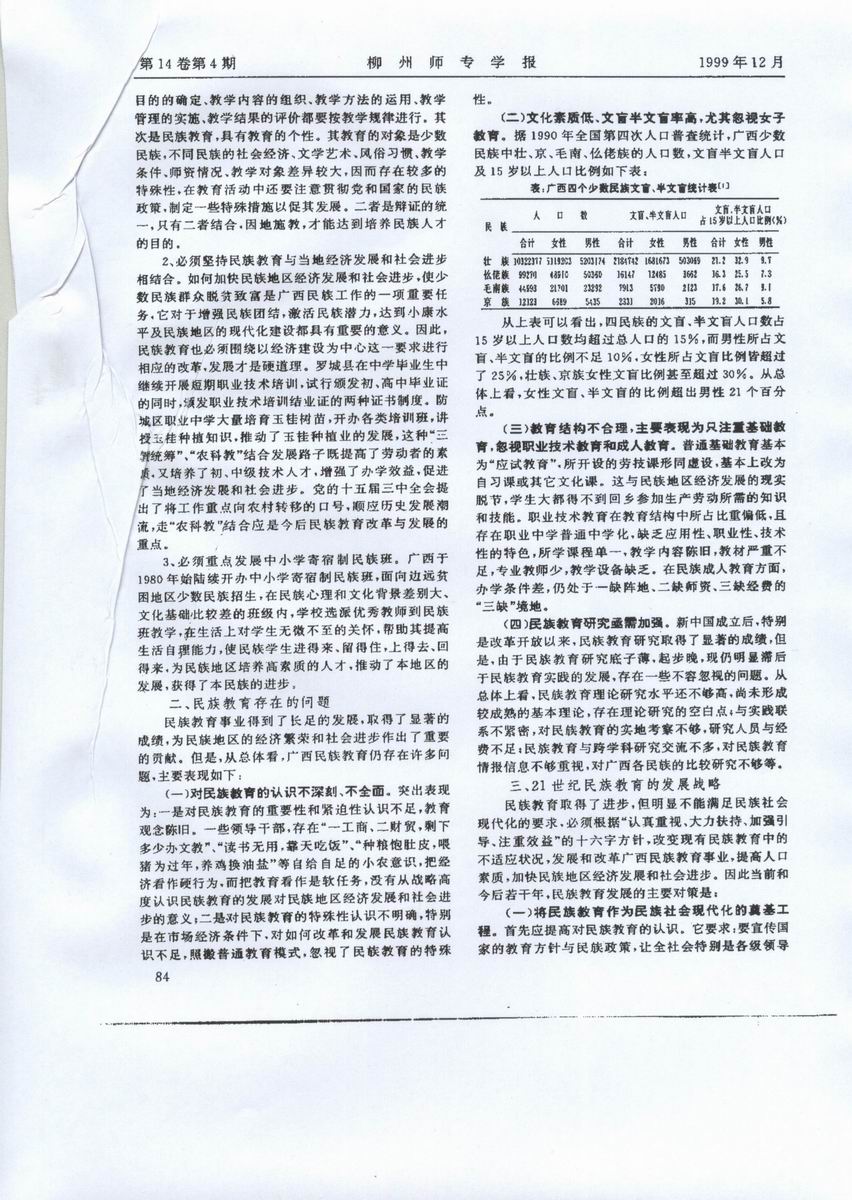 第14卷第4期 柳州师专学报 1999年12月
目的的确定、教学内容的组织、教学方法的运用、教学
管理的实施、教学结果的评价都要按教学规律进行。其
次是民族教育,具有教育的个性。其教育的对象是少数
民族,不同民族的社会经济、文学艺术、风俗习惯、教学
条件、师资情况、教学对象差异较大,因而存在较多的
特殊性,在教育活动中还要注意贯彻党和国家的民族
政策,制定一些特殊措施以促其发展。二者是辩证的统
一,只有二者结合,因地施教,才能达到培养民族人才
的目的。
2、必须坚持民族教育与当地经济发展和社会进步
相结合。如何加快民族地区经济发展和社会进步,使少
数民族群众脱贫致富是广西民族工作的一项重要任
务,它对于增强民族团结,激活民族潜力,达到小康水
平及民族地区的现代化建设都具有重要的意义。因此,
民族教育也必须围绕以经济建设为中心这一要求进行
相应的改革,发展才是硬道理。罗城县在中学毕业生中
继续开展短期职业技术培训,试行颁发初、高中毕业证
的同时,颁发职业技术培训结业证的两种证书制度。防
城区职业中学大量培育玉桂树苗,开办各类培训班,讲
授玉桂种植知识,推动了玉桂种植业的发展,这种“三
教统筹”、“农科教”结合发展路子既提高了劳动者的素
质,又培养了初、中级技术人才,增强了办学效益,促进
了当地经济发展和社会进步。党的十五届三中全会提
出了将工作重点向农村转移的口号,顺应历史发展潮
流,走“农科教”结合应是今后民族教育改革与发展的
重点。
3、必须重点发展中小学寄宿制民族班。广西于
1980年始陆续开办中小学寄宿制民族班,面向边远贫
困地区少数民族招生,在民族心理和文化背景差别大、
文化基础比较差的班级内,学校选派优秀教师到民族
班教学,在生活上对学生无微不至的关怀,帮助其提高
生活自理能力,使民族学生进得来、留得住,上得去、回
得来,为民族地区培养高素质的人才,推动了本地区的
发展,获得了本民族的进步。
二、民族教育存在的问题
民族教育事业得到了长足的发展,取得了显著的
成绩,为民族地区的经济繁荣和社会进步作出了重要
的贡献。但是,从总体看,广西民族教育仍存在许多问
题,主要表现如下:
(一)对民族教育的认识不深刻、不全面。突出表现
为:一是对民族教育的重要性和紧迫性认识不足,教育
观念陈旧。一些领导干部,存在“一工商、二财贸,剩下
多少办文教”、“读书无用,靠天吃饭”、“种粮饱肚皮,喂
猪为过年,养鸡换油盐”等自给自足的小农意识,把经
济看作硬行为,而把教育看作是软任务,没有从战略高
度认识民族教育的发展对民族地区经济发展和社会进
步的意义;二是对民族教育的特殊性认识不明确,特别
是在市场经济条件下,对如何改革和发展民族教育认
识不足,照搬普通教育模式,忽视了民族教育的特殊
84
性。
(二)文化素质低、文盲半文盲率高,尤其忽视女子
教育。据1990年全国第四次人口普查统计,广西少数
民族中壮、京、毛南、仫佬族的人口数,文盲半文盲人口
及15岁以上人口比例如下表:
表:广西四个少数民族文盲、半文盲统计表[1]
民族 人口数 文盲、半文盲人口 文盲、半文盲人口占15岁以上人口比例(%)
合计 女性 男性 合计 女性 男性 合计 女性 男性
壮族 10322377 5119203 5203174 2184742 1681673 503069 21.2 32.9 9.7
仫佬族 99270 48910 50360 16147 12485 3662 16.3 25.5 7.3
毛南族 44993 21701 23292 7913 5790 2123 17.6 26.7 9.1
京族 12123 6689 5435 2331 2016 315 19.2 30.1 5.8
从上表可以看出,四民族的文盲、半文盲人口数占
15岁以上人口数均超过总人口的15%,而男性所占文
盲、半文盲的比例不足10%,女性所占文盲比例皆超过
了25%,壮族、京族女性文盲比例甚至超过30%。从总
体上看,女性文盲、半文盲的比例超出男性21个百分
点。
(三)教育结构不合理,主要表现为只注重基础教
育,忽视职业技术教育和成人教育。普通基础教育基本
为“应试教育”,所开设的劳技课形同虚设,基本上改为
自习课或其它文化课。这与民族地区经济发展的现实
脱节,学生大都得不到回乡参加生产劳动所需的知识
和技能。职业技术教育在教育结构中所占比重偏低,且
存在职业中学普通中学化,缺乏应用性、职业性、技术
性的特色,所学课程单一,教学内容陈旧,教材严重不
足,专业教师少,教学设备缺乏。在民族成人教育方面,
办学条件差,仍处于一缺阵地、二缺师资、三缺经费的
“三缺”境地。
(四)民族教育研究亟需加强。新中国成立后,特别
是改革开放以来,民族教育研究取得了显著的成绩,但
是,由于民族教育研究底子薄,起步晚,现仍明显滞后
于民族教育实践的发展,存在一些不容忽视的问题。从
总体上看,民族教育理论研究水平还不够高,尚未形成
较成熟的基本理论,存在理论研究的空白点;与实践联
系不紧密,对民族教育的实地考察不够,研究人员与经
费不足;民族教育与跨学科研究交流不多,对民族教育
情报信息不够重视,对广西各民族的比较研究不够等。
三、21世纪民族教育的发展战略
民族教育取得了进步,但明显不能满足民族社会
现代化的要求,必须根据“认真重视、大力扶持、加强引
导、注重效益”的十六字方针,改变现有民族教育中的
不适应状况,发展和改革广西民族教育事业,提高人口
素质,加快民族地区经济发展和社会进步。因此当前和
今后若干年,民族教育发展的主要对策是:
(一)将民族教育作为民族社会现代化的奠基工
程。首先应提高对民族教育的认识。它要求:要宣传国
家的教育方针与民族政策,让全社会特别是各级领导